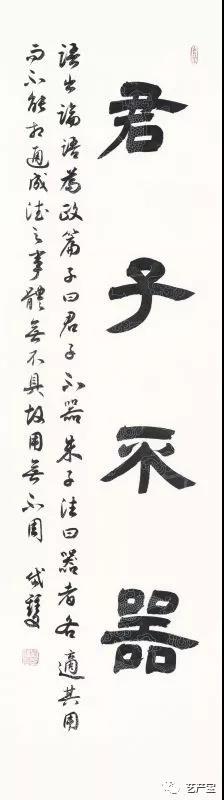 君子不器
語出論語為政篇子曰君子不器朱子注曰器者各適其用
而不能相通成德之事體無不具故用無不周
艺产宝